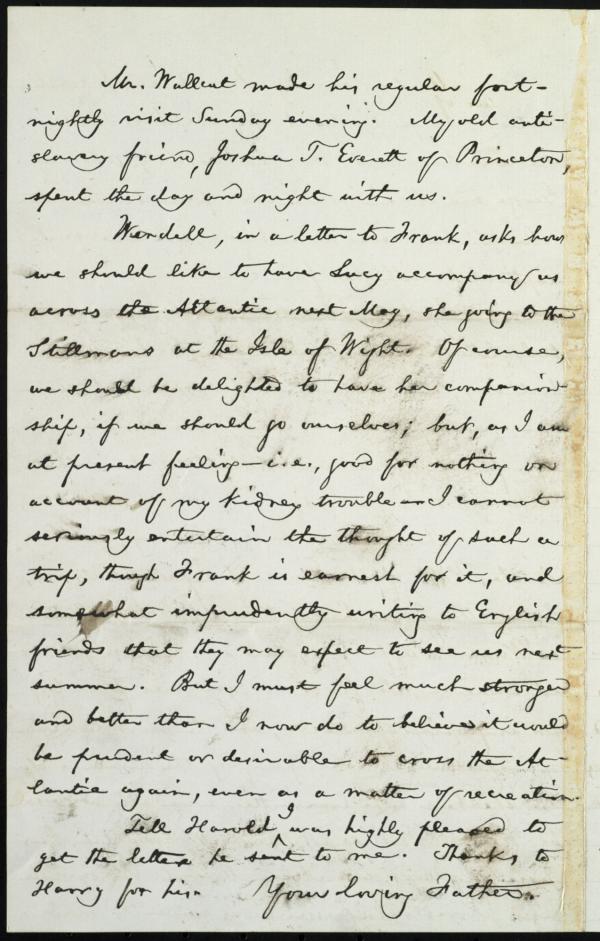 Mr. Wallcut made his regular fort-
nightly visit Sunday evening. My old anti-
slavery friend, Joshua T. Everett of Princeton,
spent the day and night with us.
Wendell, in a letter to Frank, asks how
we should like to have Lucy accompany us
across the Atlantic next May, she going to the
Stillmans at the Isle of Wight. Of course,
we should be delighted to have her companion-
ship, if we should go ourselves; but, as I am
at present feeling—i.e., good for nothing on
account of my kidney trouble—I cannot
seriously entertain the thought of such a
trip, though Frank is earnest for it, and
somewhat impudently writing to English
friends that they may expect to see us next
summer. But I must feel much stronger
and better than I now do to believe it would
be prudent or desirable to cross the At-
lantic again, even as a matter of recreation.
Tell Harold, I was highly pleased to
get the letter he sent to me. Thanks to
Harry for his. Your loving Father.